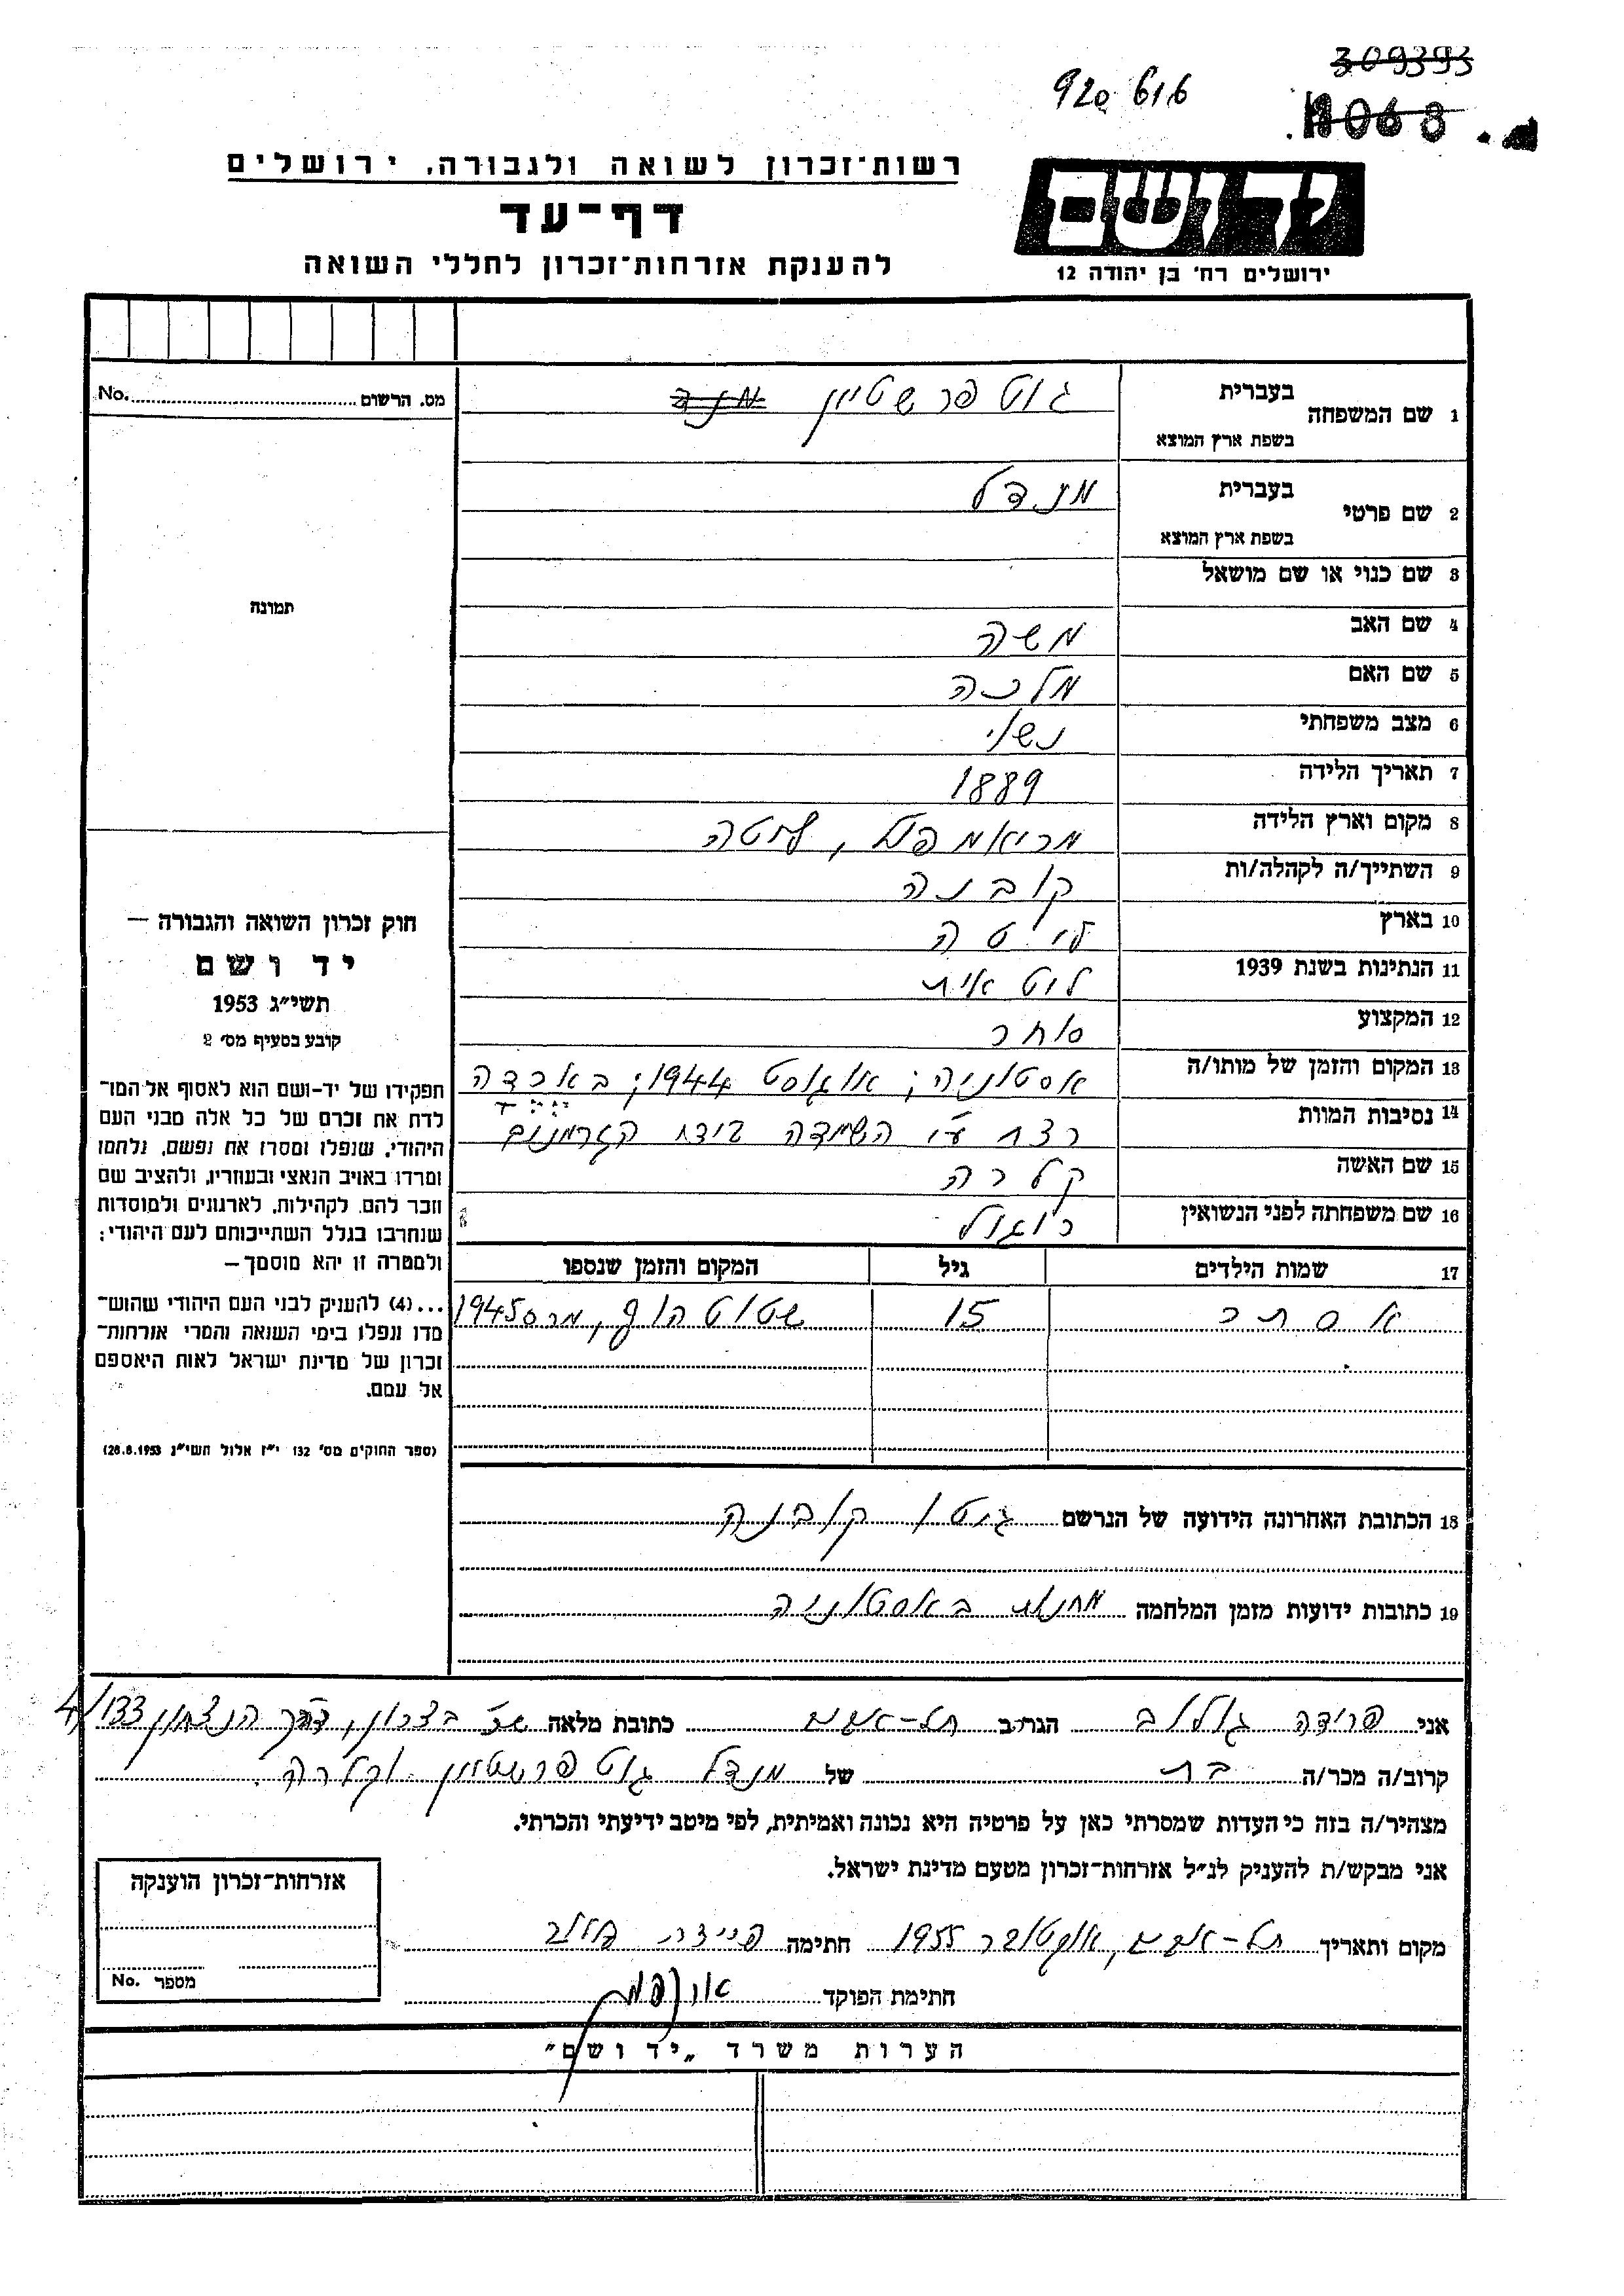 309393
920616
18068
רשות־זכרון לשואה ולגבורה, ירושלים
דף־עד
להענקת אזרחות־זכרון לחללי השואה
ידושם
ירושלים רח' בן יהודה 12
מס. הרשום No.
תמונה
חוק זכרון השואה והגבורה —
יד ושם
תשי״ג 1953
קובע בסעיף מס׳ 2
תפקידו של יד-ושם הוא לאסוף אל המו־
לדת את זכרם של כל אלה מבני העם
היהודי, שנפלו ומסרו את נפשם, נלחמו
ומרדו באויב הנאצי ובעוזריו, ולהציב שם
וזכר להם, לקהילות, לארגונים ולמוסדות
שנחרבו בגלל השתייכותם לעם היהודי;
ולמטרה זו יהא מוסמך —
...(4) להעניק לבני העם היהודי שהוש־
מדו ונפלו בימי השואה והמרי אזרחות־
זכרון של מדינת ישראל לאות היאספם
אל עמם.
(ספר החוקים מס׳ 132 י״ז אלול תשי״ג 28.8.1953)
1 שם המשפחה בעברית גוטפרשטיין
בשפת ארץ המוצא
2 שם פרטי בעברית מנדל
בשפת ארץ המוצא
3 שם כנוי או שם מושאל
4 שם האב משה
5 שם האם מלכה
6 מצב משפחתי נשוי
7 תאריך הלידה 1889
8 מקום וארץ הלידה מריאמפול, ליטה
9 השתייך/ה לקהלה/ות קובנה
10 בארץ ליטה
11 הנתינות בשנת 1939 ליטאית
12 המקצוע סוחר
13 המקום והזמן של מותו/ה אסטוניה; אוגוסט 1944;
14 נסיבות המוות רצח ע״י השמדה בידי הגרמנים
15 שם האשה קלרה
16 שם משפחתה לפני הנשואין
17 שמות הילדים גיל המקום והזמן שנספו
אסתר 15 שטוטהוף, מרס 1945
18 הכתובת האחרונה הידועה של הנרשם גיטו קובנה
19 כתובות ידועות מזמן המלחמה מחנות באסטוניה
אני פרידה גולוב הגר/ב תל-אביב כתובת מלאה שכ׳ בצרון, דרך הנצחון 4/133
קרוב/ה מכר/ה בת של מנדל גוטפרשטיין וקלרה.
מצהיר/ה בזה כי העדות שמסרתי כאן על פרטיה היא נכונה ואמיתית, לפי מיטב ידיעתי והכרתי.
אני מבקש/ת להעניק לנ״ל אזרחות-זכרון מטעם מדינת ישראל.
מקום ותאריך תל-אביב, אוקטובר 1955 חתימה פרידה גולוב
חתימת הפוקד
אזרחות־זכרון הוענקה
מספר No.
הערות משרד „יד ושם״